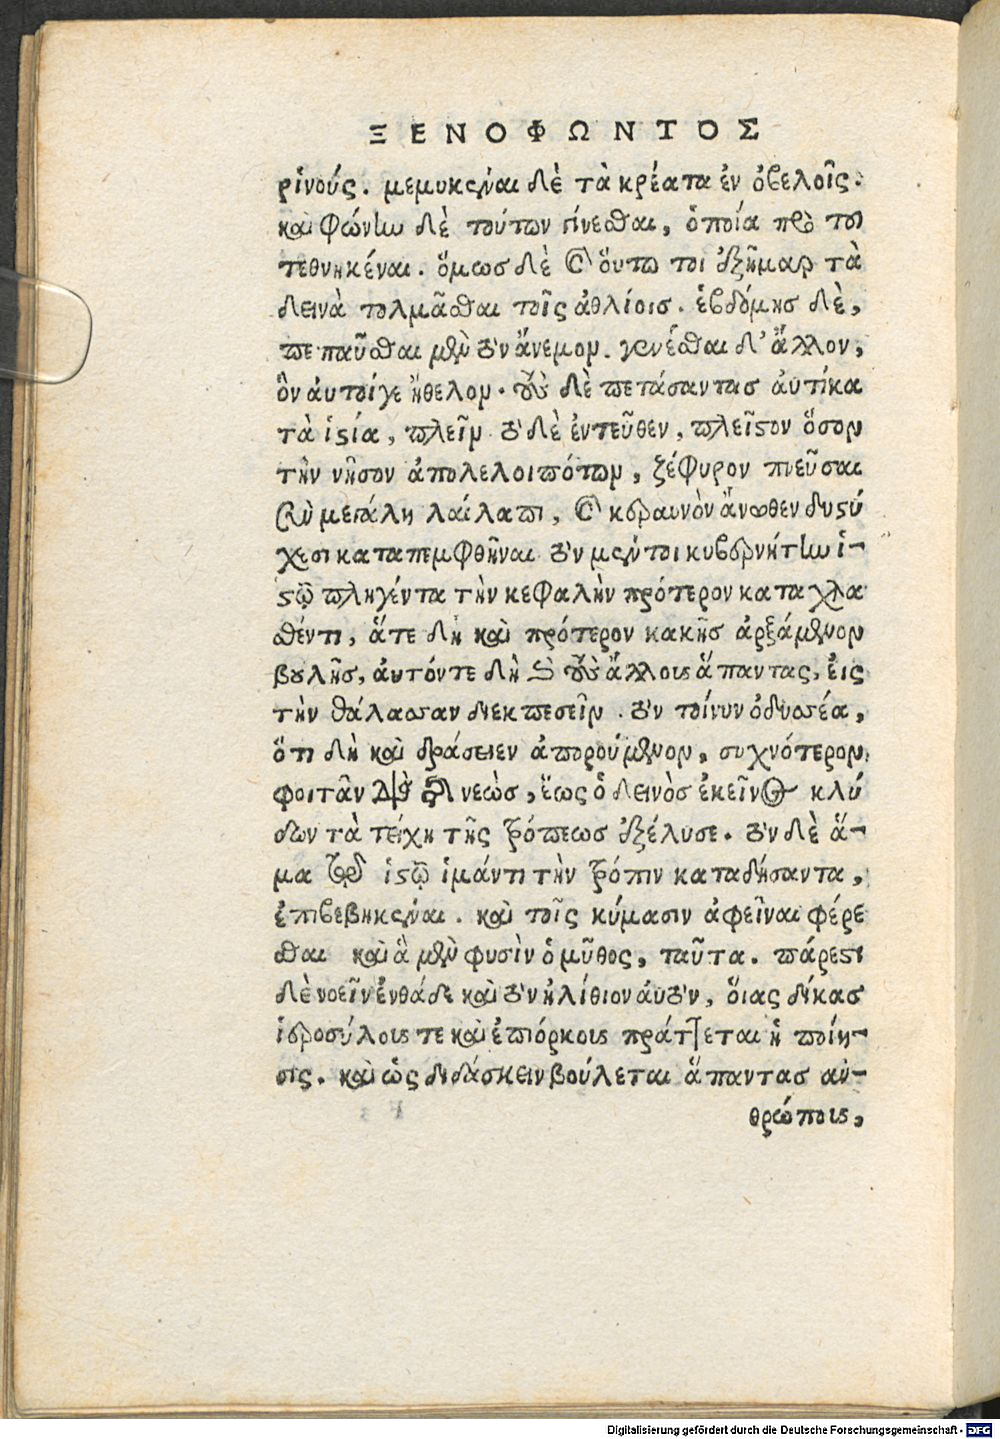 ΞΕΝΟΦΩΝΤΟΣ
ρινούς. μεμυκέναι δὲ τὰ κρέατα ἐν ὀβελοῖς.
καὶ φώνην δὲ τούτων γίνεσθαι, ὁποία πρὸ τοῦ
τεθνηκέναι. ὅμως δὲ καὶ οὕτω τοι ἐξῆμαρ τὰ
δεινὰ τολμᾶσθαι τοῖς ἀθλίοις. ἑβδόμης δὲ,
πεπαῦσθαι μὲν τὸν ἄνεμον. γενέσθαι δ' ἄλλον,
ὃν αὐτοίγε ἤθελον. τοὺς δὲ πετάσαντας ἀυτίκα
τὰ ἱστία, πλεῖν. τὸ δὲ ἐντεῦθεν, πλεῖστον ὅσον
τὴν νῆσον ἀπολελοιπότων, ζέφυρον πνεῦσαι
σὺν μεγάλῃ λαίλαπι, καὶ κεραυνὸν ἄνωθεν δυστύ
χεσι καταπεμφθῆναι τὸν μέντοι κυβερνήτην ἱ-
στῷ πληγέντα τὴν κεφαλὴν πρότερον καταχλα
σθέντι, ἅτε δὴ καὶ πρότερον κακῆς ἀρξάμενον
βουλῆς, ἀυτόντε δὴ καὶ τοὺς ἄλλους ἅπαντας, ἐις
τὴν θάλασσαν διεκπεσεῖν. τὸν τοίνυν ὀδυσσέα,
ὅτι δὴ καὶ δράσειεν ἀπορούμενον, συχνότερον
φοιτᾶν διὰ τῆς νεὼς, ἕως ὁ δεινὸς ἐκεῖνος κλύ
δων τὰ τείχη τῆς τρόπεως ἐξέλυσε. τὸν δὲ ἅ-
μα τῷ ἱστῷ ἱμάντι τὴν τρόπιν καταδήσαντα,
ἐπιβεβηκέναι. καὶ τοῖς κύμασιν ἀφεῖναι φέρε
σθαι καὶ ἃ μὲν φυσὶν ὁ μῦθος, ταῦτα. πάρεστι
δὲ νοεῖν ἐνθάδε καὶ τὸν ἠλίθιον ἀυτὸν, ὅιας δίκας
ἱεροσύλοις τε καὶ ἐπιόρκοις πράττεται ἡ ποίη-
σις. καὶ ὡς διδάσκειν βούλεται ἅπαντας αὐ-
θρώποις,
Digitalisierung gefördert durch die Deutsche Forschungsgemeinschaft - DFG